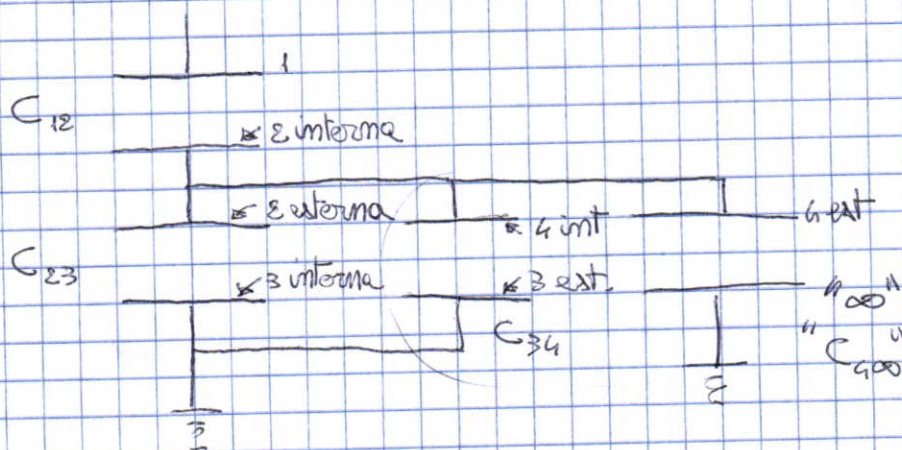 1
C₁₂
2 interna
2 esterna
4 int
4 est
C₂₃
3 interna
3 est.
"∞"
C₃₄
"C₄∞"